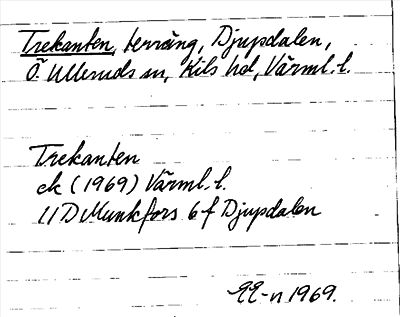 Trekanten, terräng, Djupsdalen,
Ö. Ulleruds sn, Kils hd, Värml. l.
Trekanten
ek (1969) Värml. l.
11D Munkfors 6f Djupsdalen
1969.